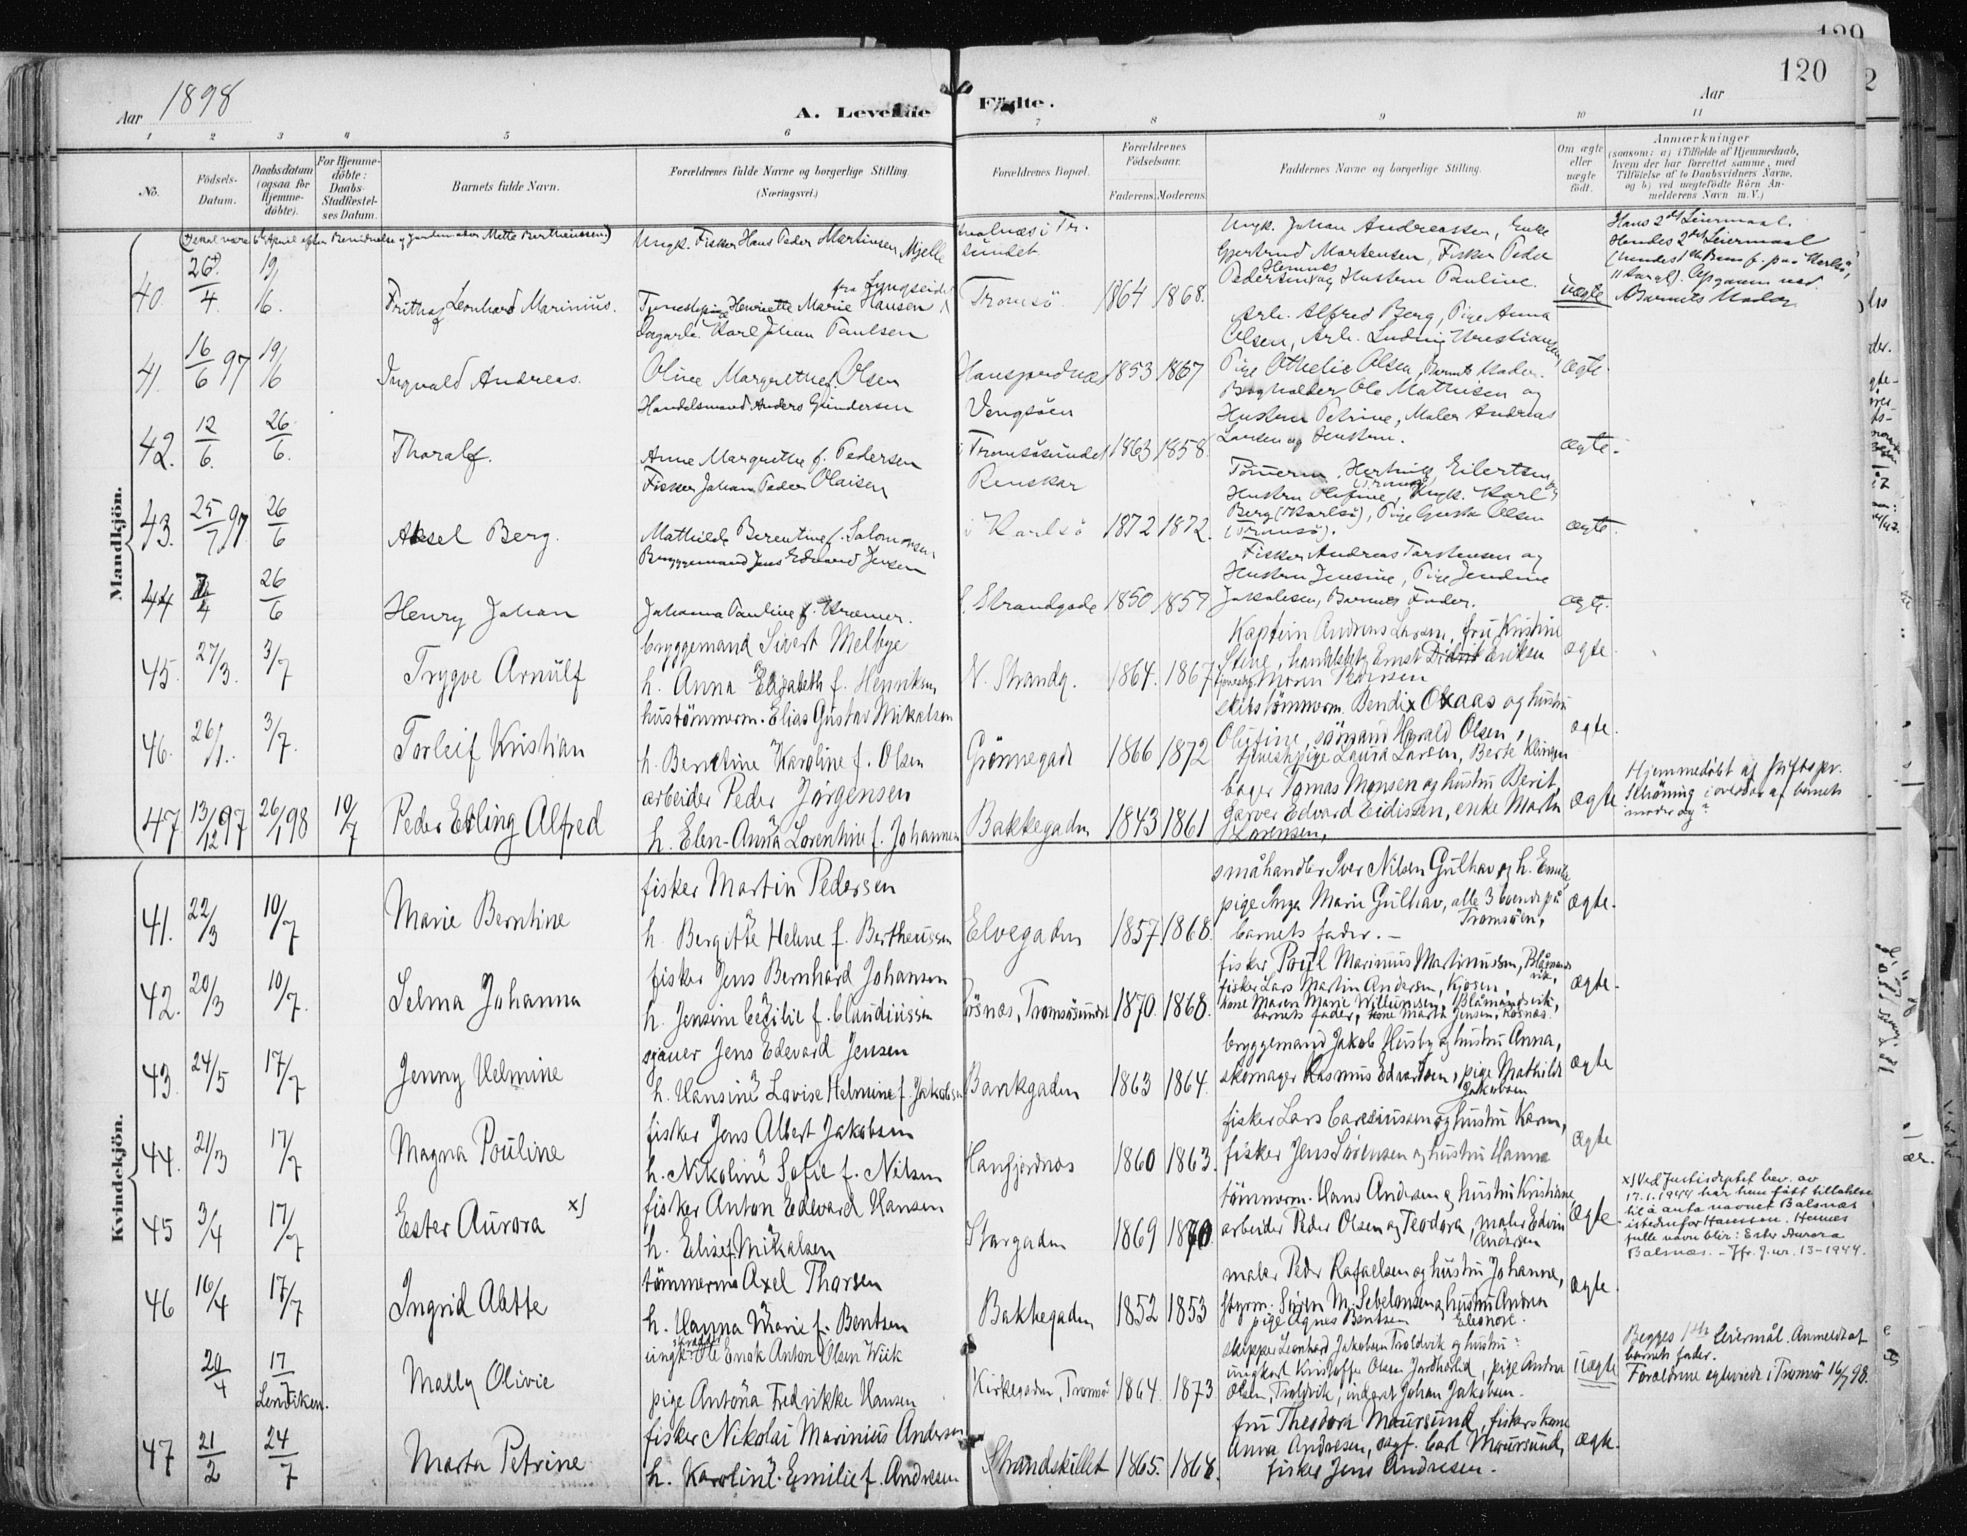 120
120
Aar 1898
A. Levende Fødte.
Aar
1 2 3 4 5 6 7 8 9 10 11
No.
Fødsels-Datum.
Daabsdatum (ogsaa for Hjemme-døbte).
For Hjemme-døbte: Daabs-Stadfæstel-ses Datum.
Barnets fulde Navn.
Forældrenes fulde Navne og borgerlige Stilling (Næringsvei.)
Forældrenes Bopæl.
Forældrenes Fødselsaar.
Faderens. Moderens.
Faddernes Navne og borgerlige Stilling.
Om ægte eller uægte født.
Anmærkninger
(saasom: a) i Tilfælde af Hjemmedaab, hvem der har forrettet samme, med Tilføielse af to Daabsvidners Navne, og b) ved uægtefødte Børn An-melderens Navn m.V.)
Mandkjön.
40 26/4 19/6 Leonhard Marinius. Ungk. Fisker Hans Peder Martinsen, Mjelle
Henriette Marie Hansen
Tromsö 1864 1868. Ungk. Johan Andreassen, Enke
Gjertrud Mortensen, Fisker Peder
Pedersen og Hustru Pauline. uægte
Hans 2det Leiermaal.
Hendes 2det Leiermaal
Barnets Moder
41 16/6 97 19/6 Ingvald Andreas. Karl Johan Paulsen
Oline Margrethe f. Olsen
1853 1867 Arb. Alfred Berg, Pige Anna
Olsen, Arb. Ludvig Kristiansen,
Pige Othelie Olsen, Barnets Moder. ægte.
42. 12/6. 26/6. Thoralf. Handelsmand Anders Gundersen
Anne Margrethe f. Pedersen
Vengsöen
i Tromsösundet 1863 1858. Ole Mathisen og
Hustru Petrine, Maler Andreas
Larsen og Hustru. ægte.
43. 25/7 97 26/6 Aksel Berg. Fisker Johan Peder Olaisen
Mathilde Berentine f. Salomonsen
Renskar
i Karlsö 1872 1872. Hartvig Eilertsen
Hustru Olufine, Ungk. Karl
Berg (Karlsö), Pige Olsen
(Tromsö). ægte.
44 4 26/6 Henry Johan Bryggemand Jens Edvard Jensen
Johanna Pauline f. Kræmer.
Strandgade 1850 1857 Fisker Andreas Torstensen og
Hustru Jensine, Pige Jendine
Jakobsen, Barnets Fader. ægte.
45. 27/3. 3/7 Trygve Arnülf bryggemand Sivert Melbye
h. Anna Elizabeth f. Henriksen
N. Strandg. 1864. 1867 Kaptein Andreas Larsen, fru Kristine
Stene, Ernst Eriksen
ægte
46. 26/1. 3/7. Torleif Kristian hustömmerm. Elias Gustav Mikalsen
h. Berntine Karoline f. Olsen
Grönnegad 1866 1872 skibstömmerm. Bendix Oxaas og hustru
Olufine, sömand Harald Olsen,
tjenestepige Laura Larsen, Berte
ægte.
47 13/12 97 26/1 98 10/7 Peder Erling Alfred arbeider Peder Jörgensen
h. Elen-Anna Lorentine f. Johannesen
Bakkegaden 1843 1861 bager Tomas Monsen og hustru Berit,
garver Edvard Eidissen, enke Martin
Lorensen, ægte
Hjemmedöbt af
i overvær af barnets
moder og ?
Kvindekjön.
41. 22/3 10/7 Marie Berntine fisker Martin Pedersen
h. Bergitte Helene f. Bertheussen
Elvegaden 1857 1868. småhandler Iver Nilsen Gulhav og h. Emilie,
pige Inga Marie Gulhav, alle 3 boende på
Tromsöen,
barnets fader. — ægte.
42. 20/3 10/7. Selma Johanna fisker Jens Bernhard Johansen
h. Jensine Cecilie f. Claudiussen
Tromsösundet 1870. 1868. fisker Poul Marinius Martinussen, Blåmands
vik,
fisker Lars Martin Andersen, Kjosen,
kone Maren Marie Willumsen, Blåmandsvik,
barnets fader, kone Marta Jensen, ægte.
43. 24/5 17/7 Jenny Helmine sjauer Jens Edevard Jensen
h. Hansine Lovise Helmine f. Jakobsen
Bankgaden 1863 1864. bryggemand Jakob Husby og hustru Anna,
skomager Rasmus Edvardsen, pige Mathilde
Jakobsen ægte
44. 21/3 17/7 Magna Pouline fisker Jens Albert Jakobsen
h. Nikoline Sofie f. Nilsen
Hansfjordnæs 1860 1863. fisker Lars og hustru Karen,
fisker Jens Sörensen og hustru Hanna ægte
45 3/4 17/7 Ester Aurora x) fisker Anton Edevard Hansen
h. Elise f. Mikalsen
Storgaden 1869 1870. tömmerm. Hans Andersen og hustru Kristiane
arbeider Peder Olsen og Teodora, maler Edvin
Andersen ægte
x) Ved Justisdeptet bev. av
17.1.1944 har hun fått tillatelse
til å anta navnet Balsnæs
istedenfor Hanssen. Hennes
fulle navn blir: Ester Aurora
Balsnæs. – Jfr. j.nr. 13-1944.
46 16/4 17/7 Ingrid Alette tömmerma Axel Thorsen
h. Hanna Marie f. Bentsen
Bakkegaden 1852 1853 maler Peder Rafaelsen og hustru Johanne,
Styrm. Sören M. Sebelonsen og hustru Andrea
pige Agnes Bentsen Eleonore. ægte.
20/4 17/7 Lenviken. Mally Olivie skrædder
ungk. Ole Enok Anton Olsen Wiik
pige Antona Fredrikke Hansen
Kirkegaden, Tromsö 1864. 1873. skipper Leonhard Jakobsen Troldvik og hustru ?
ungkarl Kristoffer Olsen, pige Andrea
Olsen, Troldvik, Johan Jakobsen. uægte
Begges 1ste leiermål. Anmeldt af
barnets fader.
Forældrene egteviede i Tromsö 16/7 98.
47 21/2 24/7 Marta Petrine fisker Nikolai Marinius Andersen
h. Karoline Emilie f. Andresen
Strandskillet 1865. 1868. fru Theodora Maursund, fiskers kone
Anna Andresen, Carl Maursund,
fisker Jens Andresen. ægte.